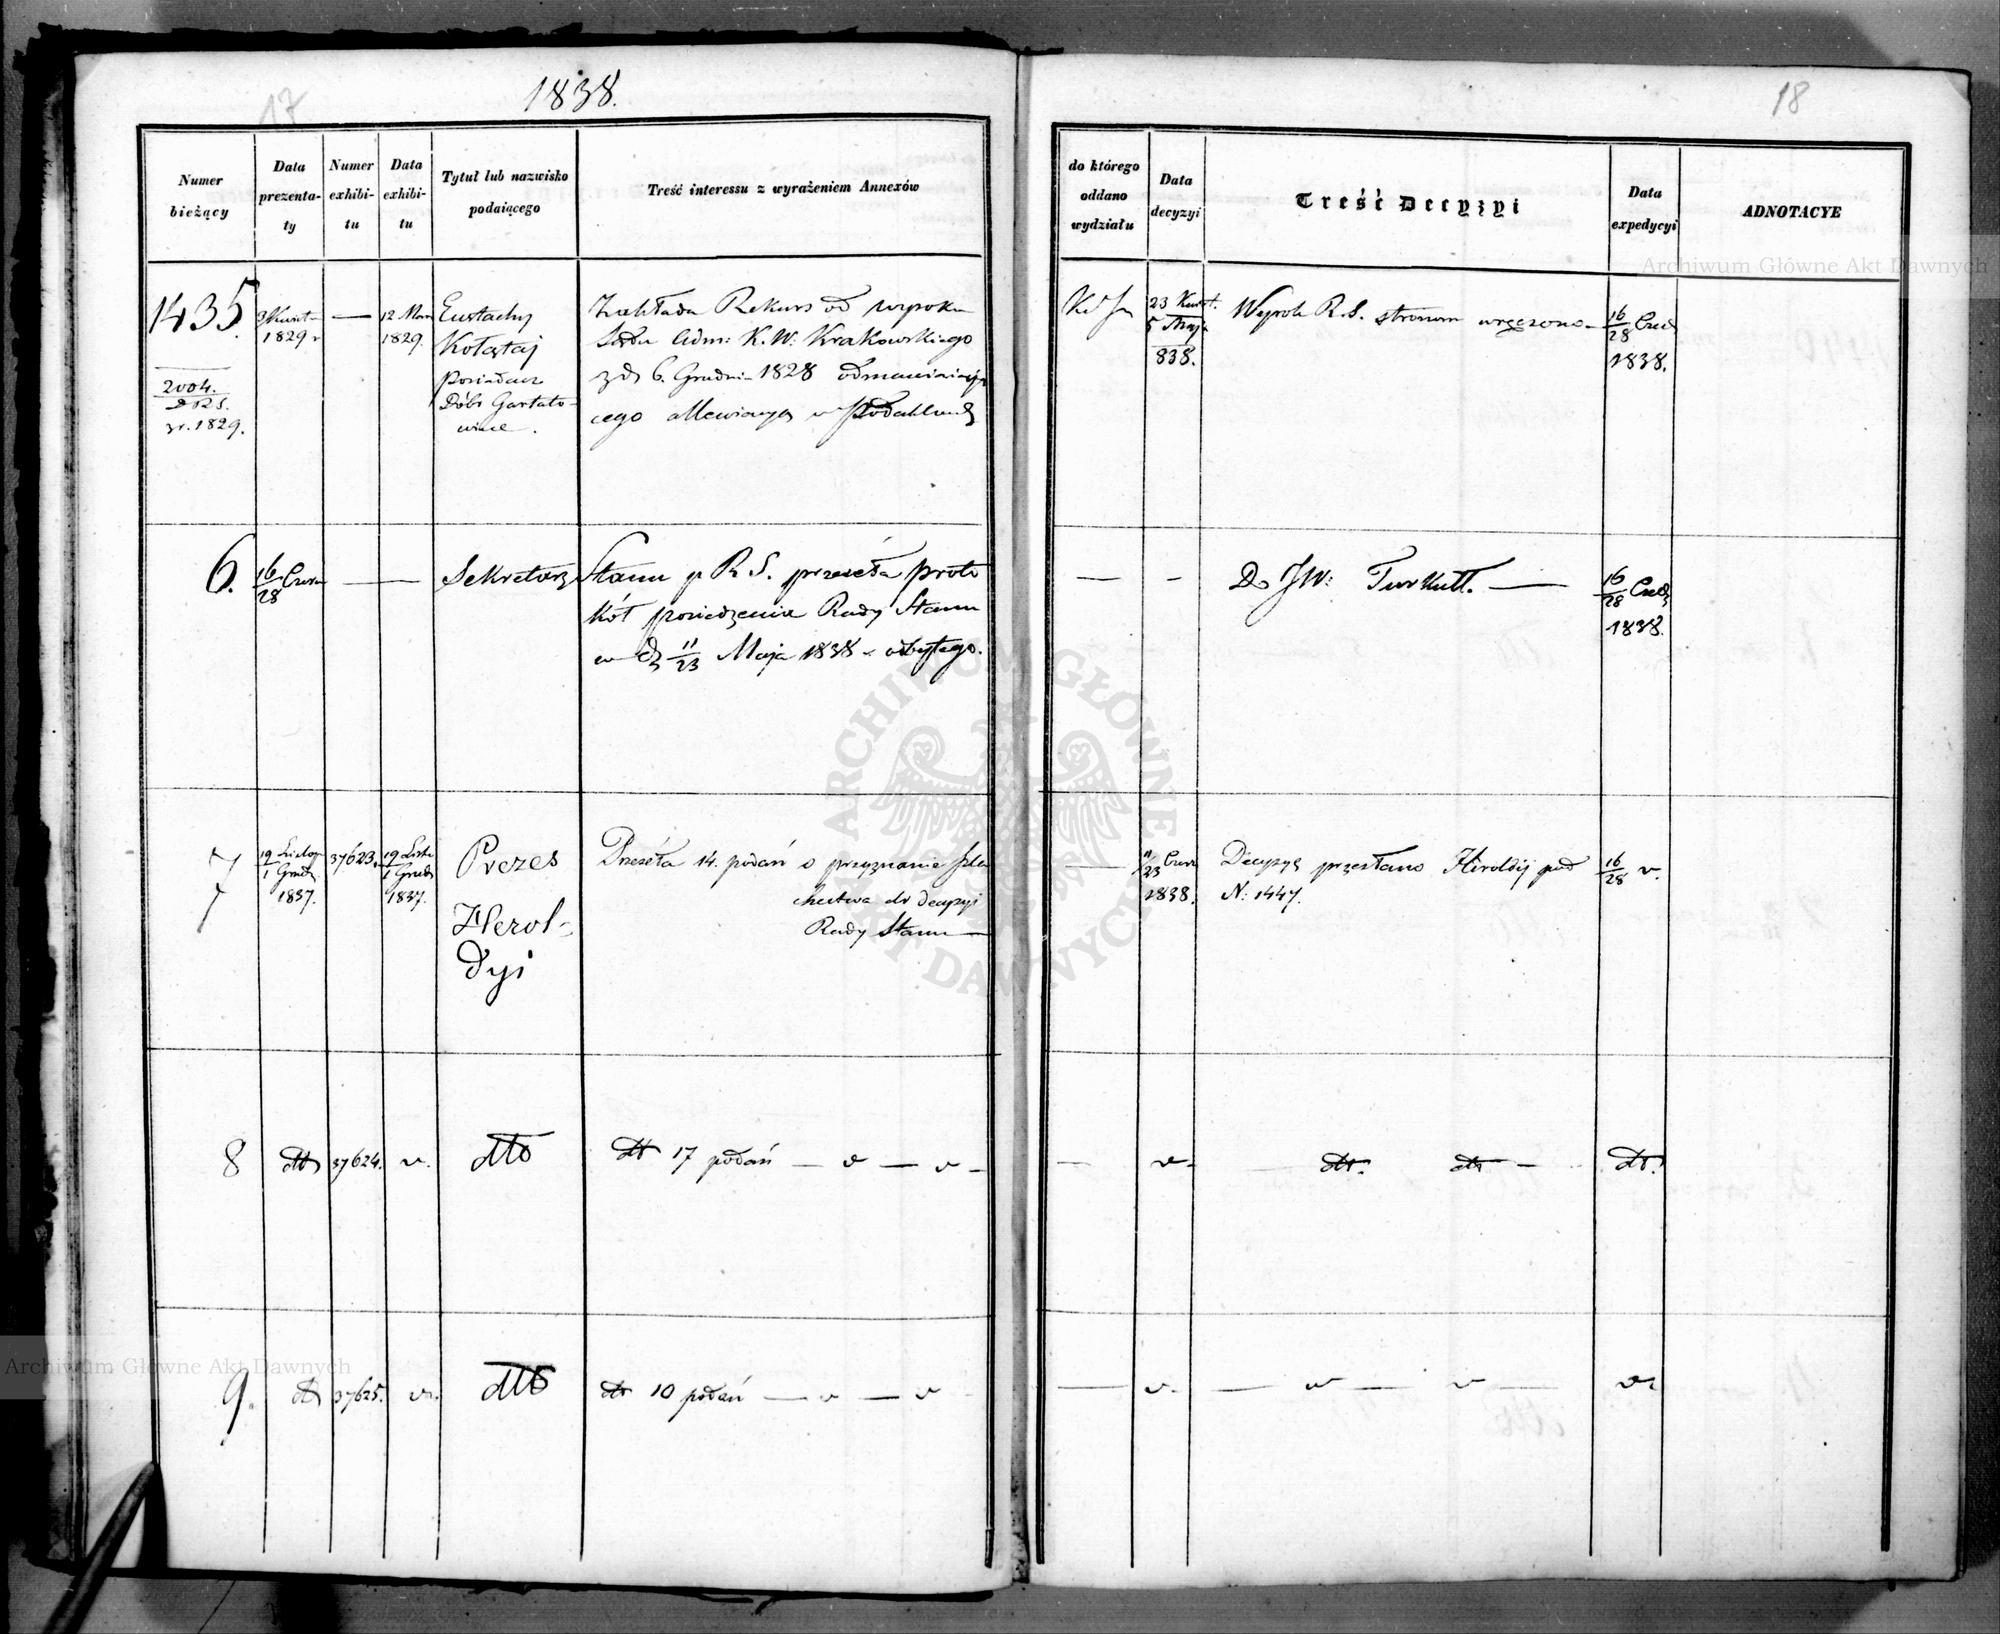 17
1838.
18
Numer bieżący
Data prezentaty
Numer exhibitu
Data exhibitu
Tytuł lub nazwisko podaiącego
Treść interessu z wyrażeniem Annexów
do którego oddano wydziału
Data decyzyi
Treść Decyzyi
Data expedycyi
ADNOTACYE
1435.
2004.
z r. 1829.
3 Kwiet
1829 r
—
12 Mar
1829.
Eustachy
Kołątaj
Posiadacz
Dóbr Gartato-
wice.
Zakłada Rekurs od wyroku
Sądu Adm: K. W: Krakowskiego
z d 6. Grudnia 1828 odmawiaiją
cego allewiacyą w Podatkach
23 Kwiet.
5 Maja
838.
Wyrok R. S. stronom wręczono
16/28 Cze
1838.
6.
16/28 Czerw
—
—
Sekretarz
Stanu p R S. przeseła proto
kół posiedzenia Rady Stanu
w d 11/23 Maja 1838 r odbytego.
—
-
Do JW: Turkułł. —
16/28 Cze
1838.
7
19 Listop
1 Grud
1837.
37623.
19 Listo
1 Grud
1837.
Prezes
Herol-
dyi
Przeséła 14. podań o przyznanie szla
chectwa do decyzyi
Rady Stanu —
—
11/23 Czer
1838.
Decyzyą przesłano Heroldij pod
N: 1447.
16/28 v.
8
dto
37624.
v.
dto
dto 17 podań — v — v -
—
v.
dto.
dto —
dto.
9.
dto
37625.
v.
dto
dto 10 podań — v — v
—
v.
— v — v —
v.
Archiwum Główne Akt Dawnych
ARCHIWUM GŁÓWNE AKT DAWNYCH
Archiwum Główne Akt Dawnych